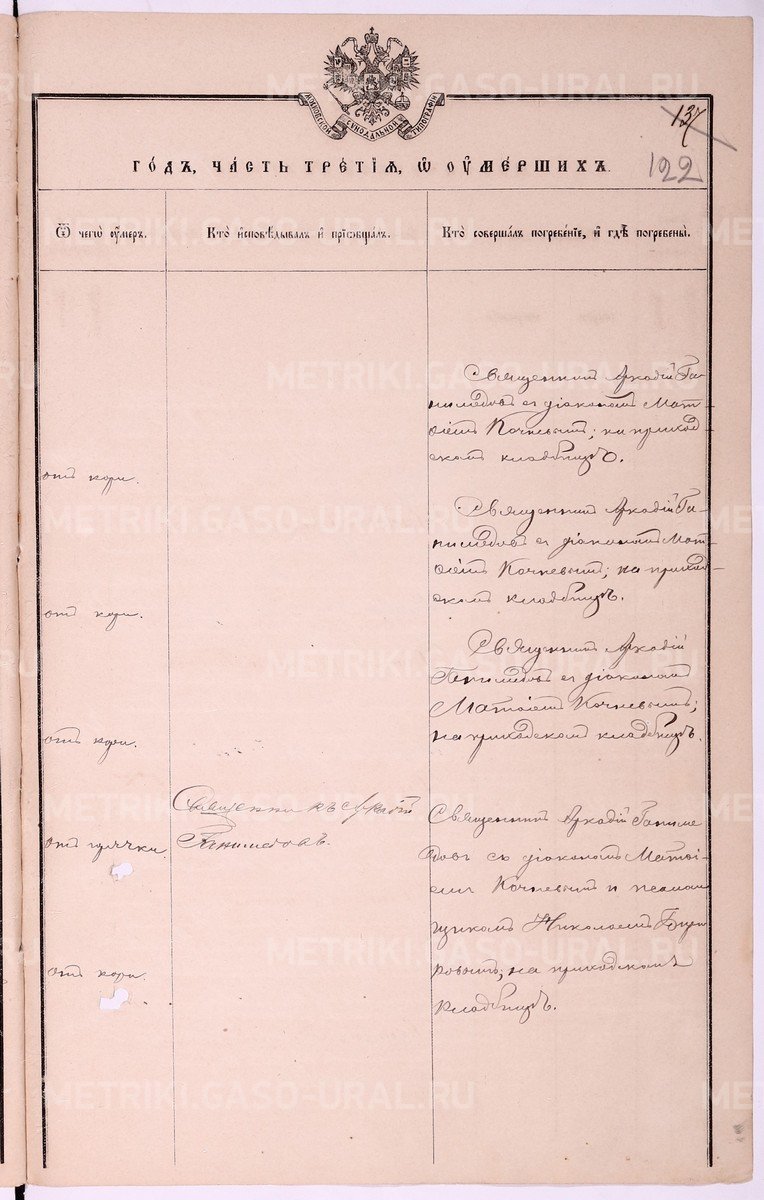 МОСКОВСКОЙ СѴНОДАЛЬНОЙ ТИПОГРАФІИ
137
122
ГО́ДЪ, ЧА́СТЬ ТРЕ́ТІѦ, Ѡ҆ ОУ҆МЕ́РШИХЪ.
Ѿ чегѡ̀ оу҆́меръ.
Кто̀ и҆сповѣ́дывалъ и҆ прїѡбща́лъ.
Кто̀ соверша́лъ погребе́нїе, и҆ гдѣ̀ погребены̀.
Священникъ Аркадій Га-
ниммедовъ съ діакономъ Мат-
ѳіемъ Кочневымъ; на приход-
скомъ кладбищѣ.
отъ кори.
Священникъ Аркадій Га-
нимедовъ съ діакономъ Мат-
ѳіемъ Кочневымъ; на приход-
скомъ кладбищѣ.
отъ кори.
Священникъ Аркадій
Ганимедовъ съ діакономъ
Матѳіемъ Кочневымъ;
на приходскомъ кладбищѣ.
отъ кори.
Священникъ Аркадій
Ганимедовъ.
отъ
Священникъ Аркадій Ганиме
довъ съ діакономъ Матѳі-
емъ Кочневымъ и псалом
щикомъ Николаемъ
на приходскомъ
кладбищѣ.
отъ кори.
METRIKI.GASO-URAL.RU